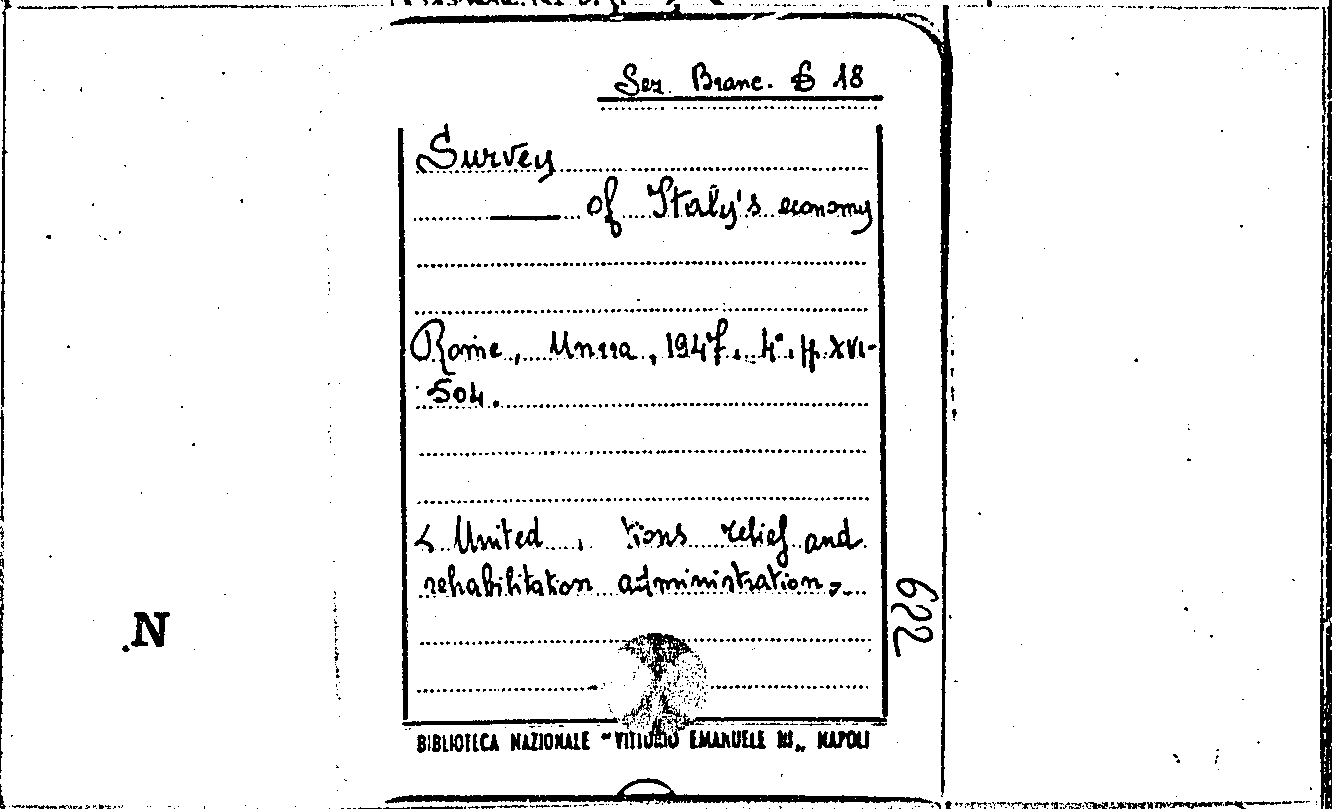 Sez. Branc. B 18
Survey
of Italy's economy
Rome, Unrra, 1947. 4°. pp. XVI-
504.
< United , tions relief and
rehabilitation administration >
622
N
BIBLIOTECA NAZIONALE "VITTORIO EMANUELE III„ NAPOLI